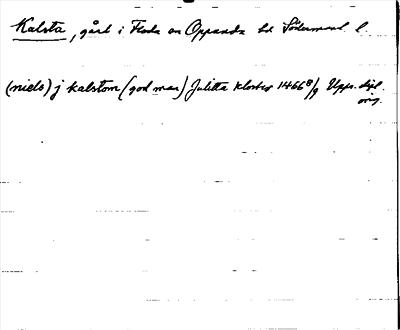 Kalsta, gård i Floda sn Oppunda hd Södermanl. l.
(niels) j kalstom (god man) Julitta kloster 1466 8/9 Upps. dipl.
orig.